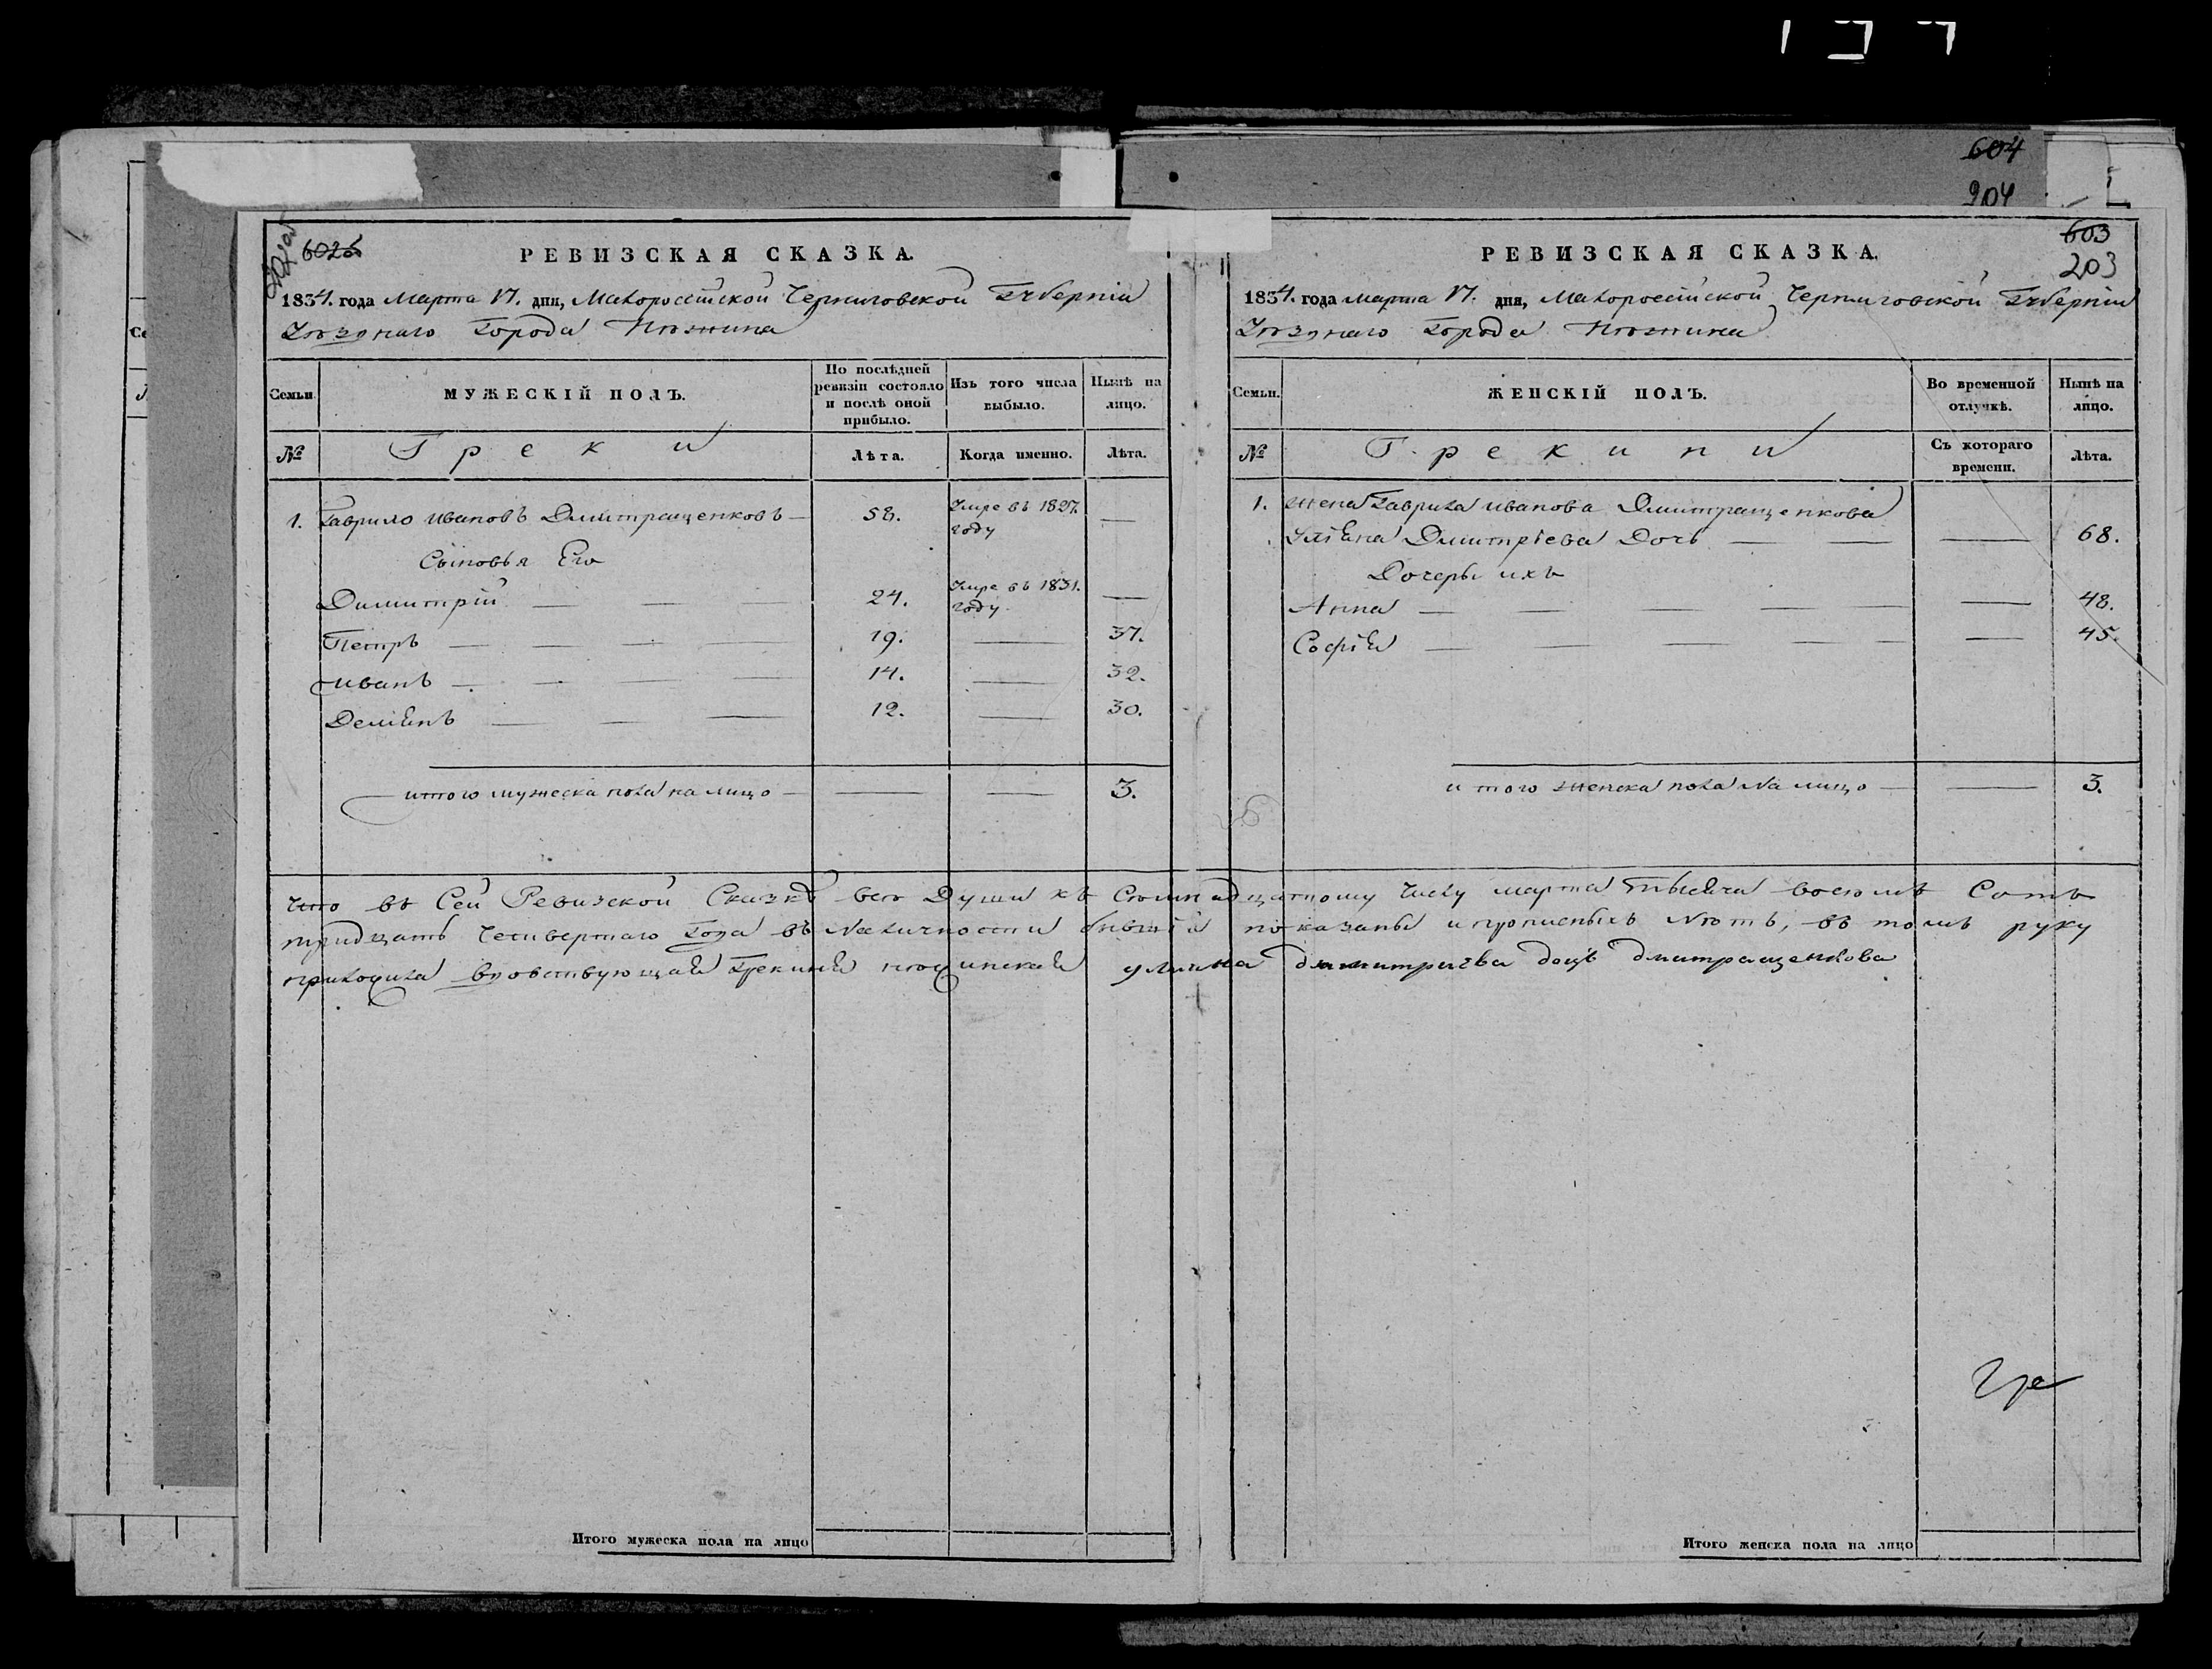 604
904
602б
РЕВИЗСКАЯ СКАЗКА.
1834. года Марта 17. дня, Малороссійской Черниговской Губерніи
Уѣзднаго Города Нѣжина
Семьи
МУЖЕСКІЙ ПОЛЪ.
По послѣдней ревизіи состояло и послѣ оной прибыло.
Изъ того числа выбыло.
Нынѣ на лицо.
№
Греки
Лѣта.
Когда именно.
Лѣта.
1. Гаврило Ивановъ Дмитращенковъ — 58. Умре въ 1827. году —
Сыновья Его
Димитрій — — — 24. Умре въ 1831. году —
Петръ — — — — 19. — 37.
Иванъ — — — — 14. — 32.
Демянъ — — — 12. — 30.
итого мужеска пола на лицо — — — 3.
603
203
РЕВИЗСКАЯ СКАЗКА.
1834. года Марта 17. дня, Малороссійской Черниговской Губерніи
Уѣзднаго Города Нѣжина
Семьи.
ЖЕНСКІЙ ПОЛЪ.
Во временной отлучкѣ.
Нынѣ на лицо.
№
Грекини
Съ котораго времени.
Лѣта.
1. Жена Гаврила Иванова Дмитращенкова
Уліяна Дмитріева Дочь — — — 68.
Дочеры ихъ
Анна — — — — — 48.
Софія — — — — — 45.
итого женска пола на лицо — — 3.
Что въ Сей Ревизской Сказкѣ все Души къ Семнадцатному Числу марта тысяча восемъ Сотъ
тридцать Четвертаго Года въ Наличности бывшіи показаны и прописныхъ Нѣтъ, въ томъ руку
приложила вдовствующая Грекиня нѣжинская улияна димитриева доць дмитращенкова
Гре
Итого мужеска пола на лицо
Итого женска пола на лицо